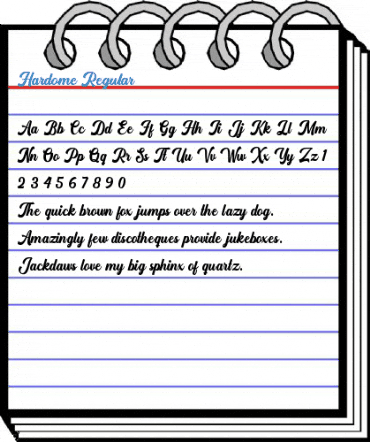 Hardome Regular
Aa Bb Cc Dd Ee Ff Gg Hh Ii Jj Kk Ll Mm
Nn Oo Pp Qq Rr Ss Tt Uu Vv Ww Xx Yy Zz 1
2 3 4 5 6 7 8 9 0
The quick brown fox jumps over the lazy dog.
Amazingly few discotheques provide jukeboxes.
Jackdaws love my big sphinx of quartz.